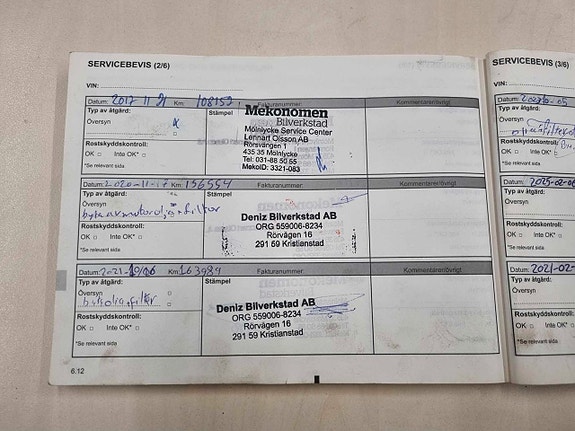 SERVICEBEVIS (2/6)
VIN:
Datum: 2017 11 21 Km: 108159 Fakturanummer: Kommentarer/övrigt
Typ av åtgärd: Stämpel
Översyn x
Rostskyddskontroll:
OK Inte OK*:
*Se relevant sida
Mekonomen
Bilverkstad
Mölnlycke Service Center
Lennart Olsson AB
Rörsvängen 1
435 35 Mölnlycke
Tel: 031-88 50 55
MekoID: 3321-083
Datum: 2020-11-17 Km: 156554 Fakturanummer: Kommentarer/övrigt
Typ av åtgärd: Stämpel
Översyn
byte av motorolja + filter
Rostskyddskontroll:
OK Inte OK*:
*Se relevant sida
Deniz Bilverkstad AB
ORG 559006-8234
Rörvägen 16
291 59 Kristianstad
Datum: 2021-10/06 Km: 163989 Fakturanummer: Kommentarer/övrigt
Typ av åtgärd: Stämpel
Översyn
filter
Rostskyddskontroll:
OK Inte OK*:
*Se relevant sida
Deniz Bilverkstad AB
ORG 559006-8234
Rörvägen 16
291 59 Kristianstad
6.12
SERVICEBEVIS (3/6)
VIN:
Datum:
Typ av åtgärd:
Översyn
Rostskyddskontroll:
OK Inte
*Se relevant sida
Datum: 2025-02-0
Typ av åtgärd:
Översyn
Rostskyddskontroll:
OK Inte OK
*Se relevant sida
Datum: 2021-02-
Typ av åtgärd:
Översyn
Rostskyddskontroll:
OK Inte OK
*Se relevant sida